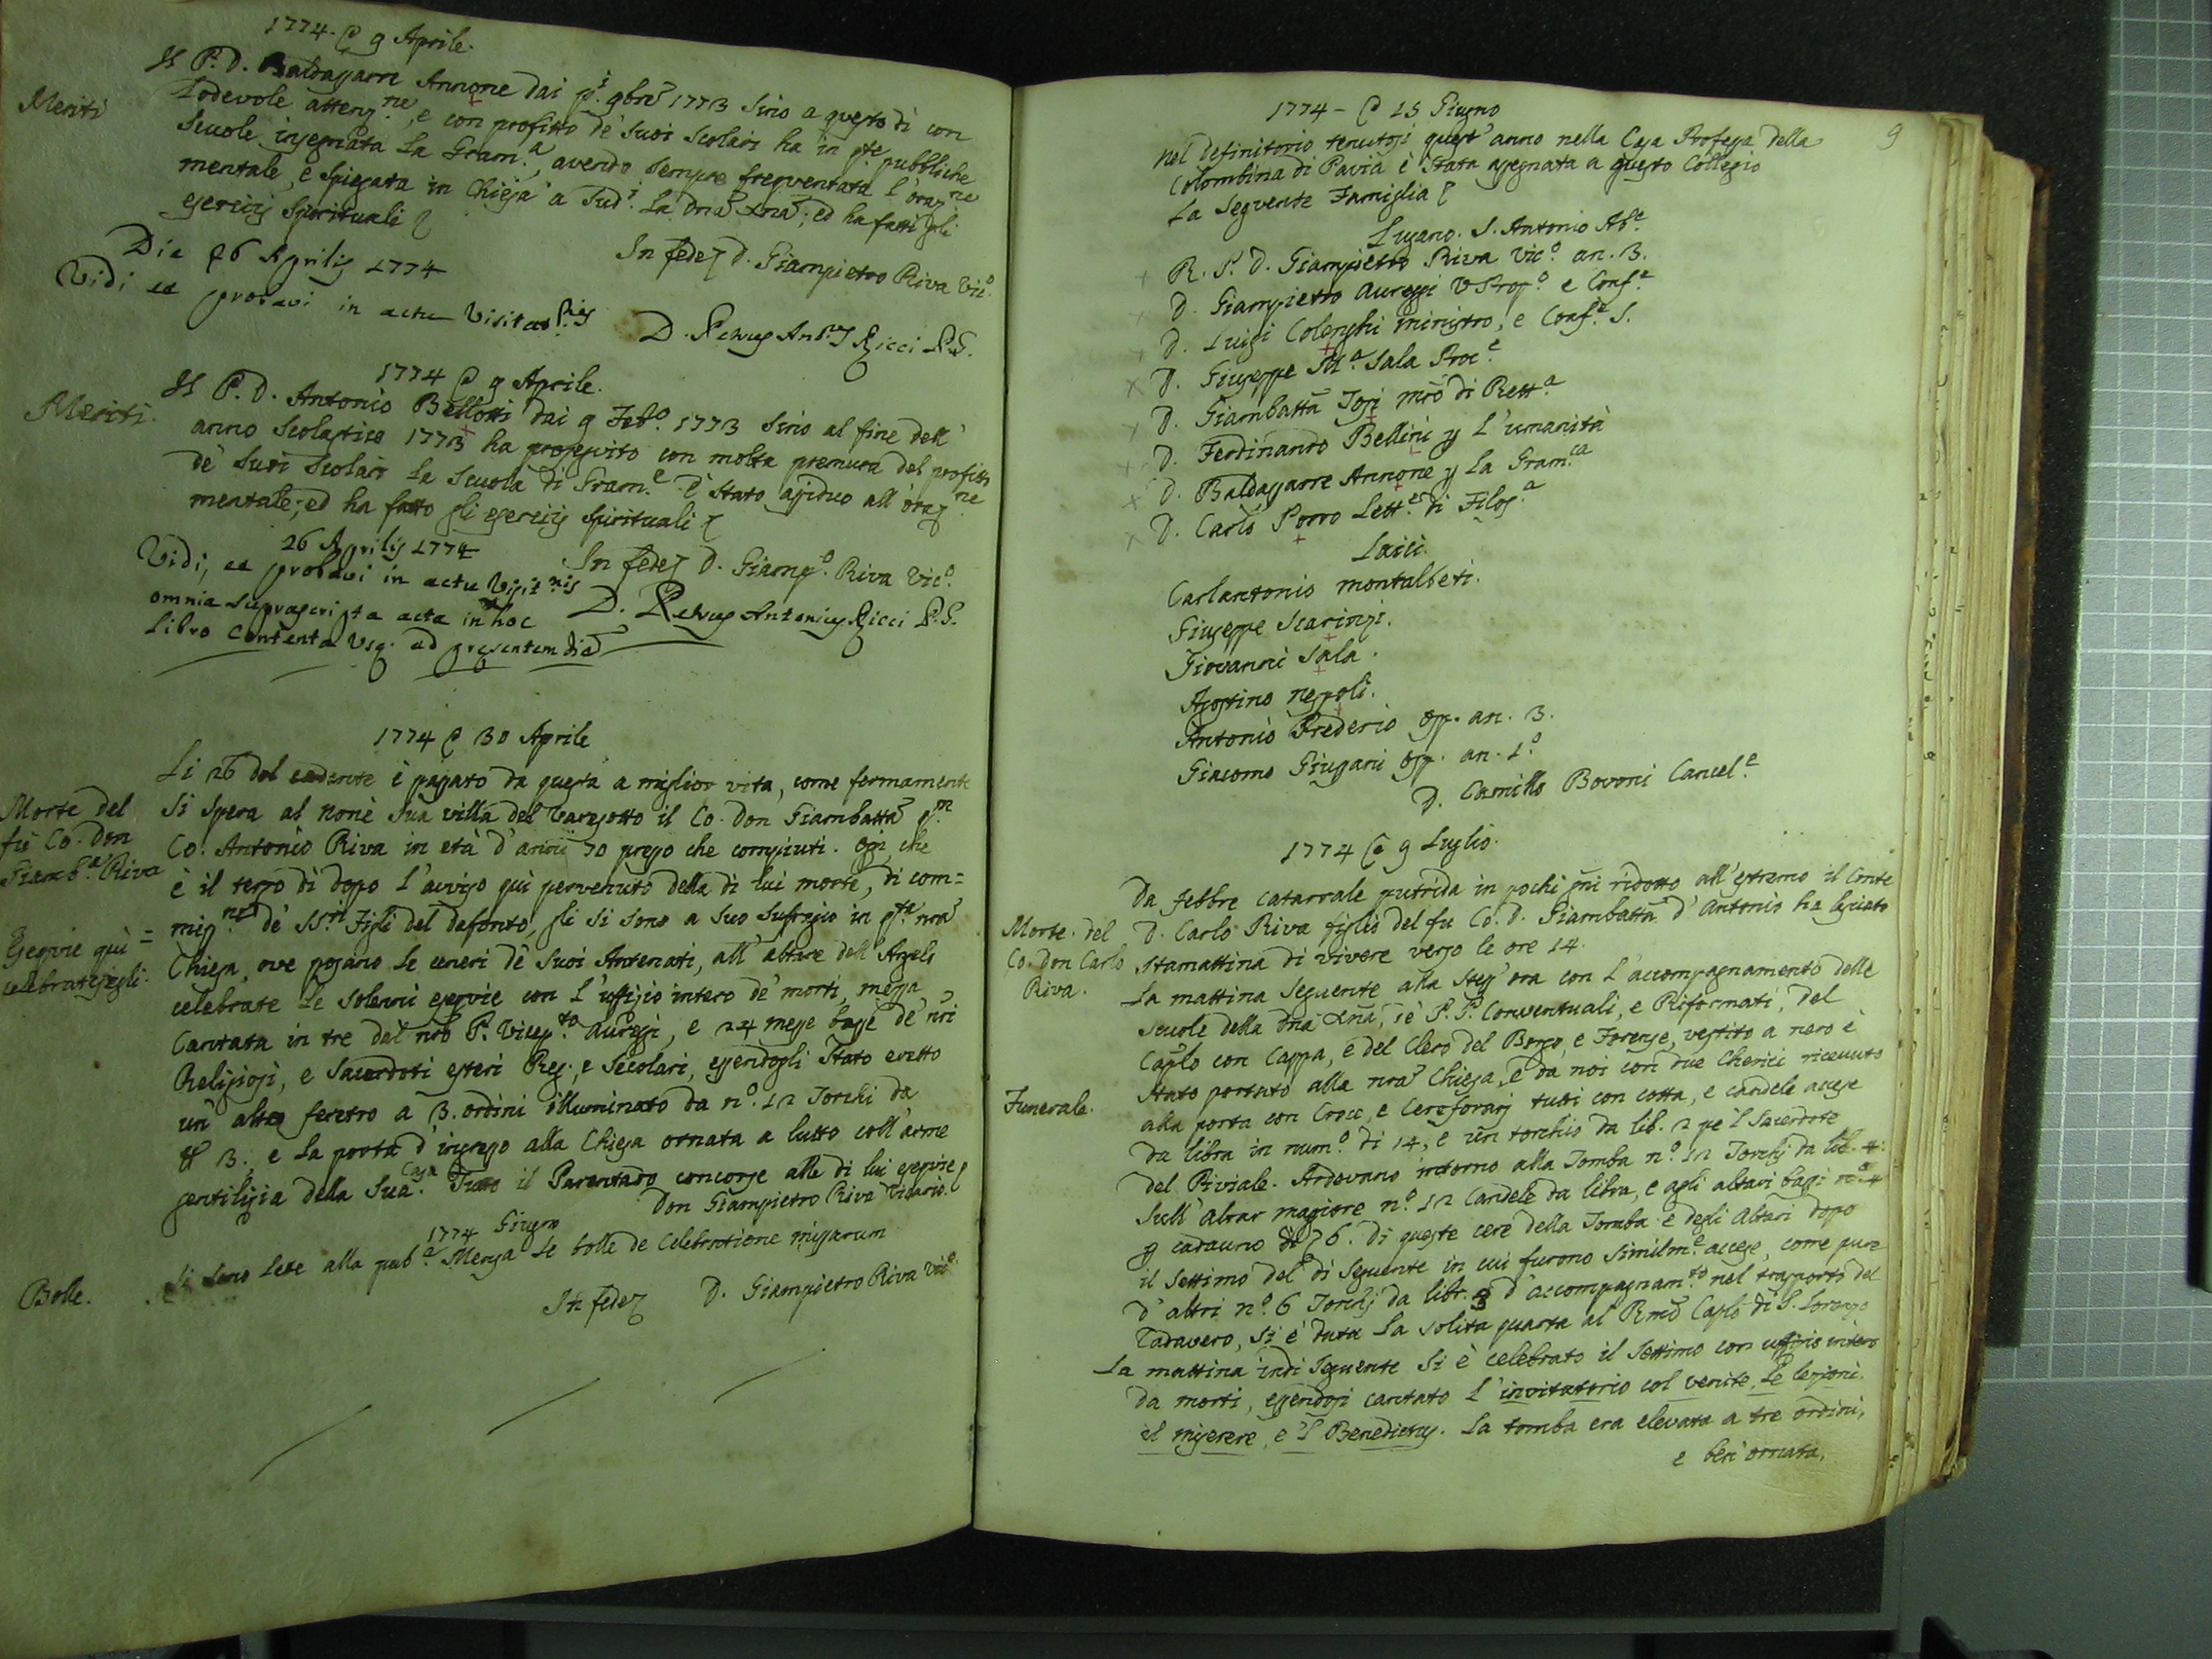 1774. @ 9 Aprile.
Meriti
Il P. D. Baldassarre Annone dai p.i 9bre 1773 sino a questo dì con
lodevole attenz.ne, e con profitto de' suoi Scolari ha in q.te pubbliche
Scuole insegnata la Gram.a, avendo sempre frequentata l'oraz.ne
mentale, e spiegata in Chiesa a Sud.i la Dna Xna; ed ha fatti gli
esercizj spirituali
In fede D. Giampietro Riva Vic.o
Die 26 Aprilis 1774
Vidi et probavi in actu Visitat.nis
D. Petrus Ant.s Ricci P.G.
1774 @ 9 Aprile.
Meriti.
Il P. D. Antonio Bellotti dai 9 Feb.o 1773 sino al fine dell'
anno Scolastico 1773 ha proseguito con molta premura del profitto
de' suoi Scolari la Scuola di Gram.e È stato assiduo all'oraz.ne
mentale; ed ha fatto gli esercizj spirituali
In fede D. Giamp.o Riva Vic.o
26 Aprilis 1774
Vidi, et probavi in actu Visit.nis
omnia suprascripta acta in hoc
libro contenta usq. ad presentem diē
D. Petrus Antonius Ricci P.G.
1774 @ 30 Aprile
Morte del
fù Co. Don
Giamb.a Riva
Li 26 del cadente è passato da questa a miglior vita, come fermamente
si spera al none sua villa del Varesotto il Co. Don Giambatta q.m
Co. Antonio Riva in età d'anni 70 presso che compiuti. Oggi, che
è il terzo dì dopo l'avviso quì pervenuto della di lui morte, di com=
miss.ne de' SS.ri Figli del defonto, gli si sono a suo suffragio in q.ta nra
Esequie quì =
celebrategli.
Chiesa, ove posano le ceneri de' suoi Antenati, all'altare dell'Angelo
celebrate le solenni esequie con l'uffizio intero de' morti, messa
Cantata in tre dal nro P. Vicep.to Aureggi, e 24 messe basse de' nri
Religiosi, e Sacerdoti esteri Reg., e Secolari, essendogli stato eretto
un alto feretro a 3. ordini illuminato da n.o 12 Torchi da
lb 3., e la porta d'ingresso alla Chiesa ornata a lutto coll'arme
gentilizia della sua Casa. Tutto il Parentado concorse alle di lui esequie
Don Giampietro Riva Vicario.
1774 Giugno
Bolle.
Si sono lette alla pub.a Mensa le bolle de Celebratione missarum
In fede D. Giampietro Riva Vic.o
9
1774 - @ 15 Giugno
Nel definitorio tenutosi quest'anno nella Casa Professa della
Colombina di Pavia è stata assegnata a questo Collegio
la seguente Famiglia
Lugano. S. Antonio Ab.e
R. P. D. Giampietro Riva Vic.o an. 3.
D. Giampietro Aureggi VProp.o e Conf.e
D. Luigi Colenghi Ministro, e Conf.e S.
D. Giuseppe M.a Sala Proc.e
D. Giambatta Tosi mro di Rett.a
D. Ferdinando Bellini p l'umanità
D. Baldassarre Annone p la Gram.ca
D. Carlo Porro Lett.e di Filos.a
Laici.
Carlantonio Montalbeti.
Giuseppe Scarinzi.
Giovanni Sala.
Agostino Nespoli.
Antonio Frederio Osp. an. 3.
Giacomo Giugani Osp. an. 1.o
D. Camillo Bovoni Cancel.e
1774 @ 9 Luglio.
Morte del
Co. Don Carlo
Riva.
Da febbre catarrale putrida in pochi gni ridotto all'estremo il Conte
D. Carlo Riva figlio del fu Co. D. Giambatta d'Antonio ha lasciato
stamattina di vivere verso le ore 14.
La mattina seguente alla stess'ora con l'accompagnamento delle
scuole della Dna Xna, de' P.P. Conventuali, e Riformati, del
Caplo con Cappa, e del Clero del Borgo, e Forense, vestito a nero è
stato portato alla nra Chiesa, e da noi con due Cherici ricevuto
Funerale.
alla porta con Croce, e Ceroforarj tutti con cotta, e candele accese
da libra in num.o di 14, e un torchio da lib. 2 pe 'l Sacerdote
del Piviale. Ardevano intorno alla Tomba n.o 12 Torchj da lib. 4.
Sull'Altar magiore n.o 12 Candele da libra, e agli altari bassi n.o 4
p cadauno di 6. Di queste cere della Tomba e degli Altari dopo
il settimo del dì seguente in cui furono similm.e accese, come pure
d'altri n.o 6 Torchj da libr. 3 d'accompagnam.to nel trasporto del
Cadavero, si è data la solita quarta al Rmo Caplo di S. Lorenzo
La mattina indi seguente si è celebrato il settimo con uffizio intero
da morti, essendosi cantato l'invitatorio col venite, le lezioni.
il miserere, e 'l Benedictus. La tomba era elevata a tre ordini,
e ben ornata,